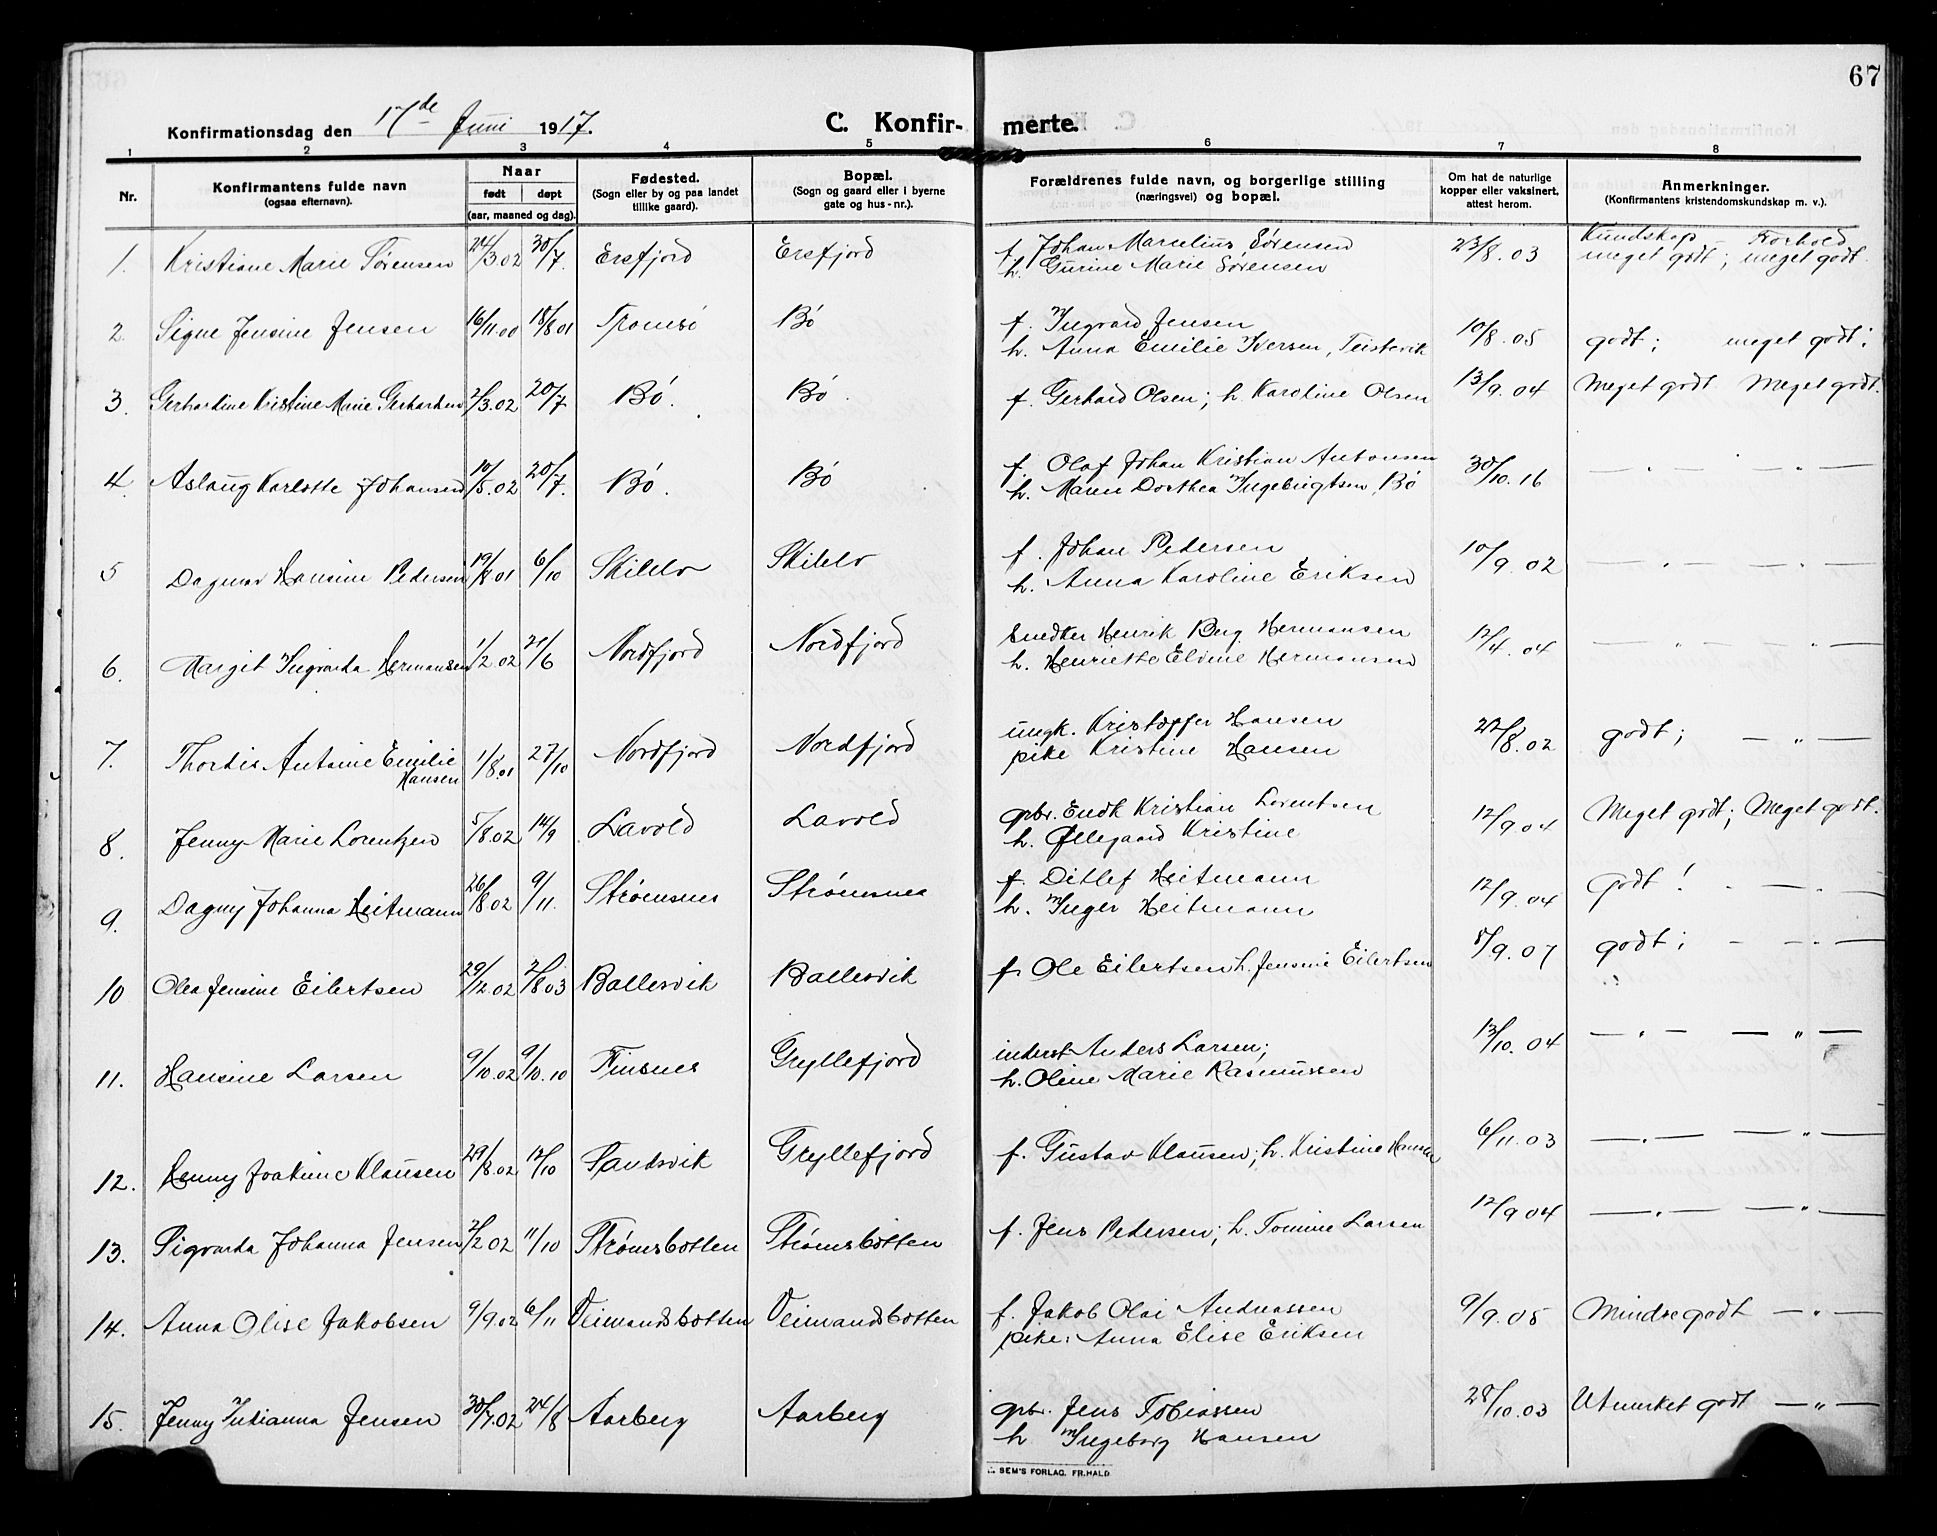 67
Konfirmationsdag den 17de Juni 1917.
C. Konfirmerte.
1 2 3 4 5 6 7 8
Nr. Konfirmantens fulde navn (ogsaa efternavn). Naar født døpt (aar, maaned og dag). Fødested. (Sogn eller by og paa landet tillike gaard). Bopæl. (Sogn og gaard eller i byerne gate og hus-nr.). Forældrenes fulde navn, og borgerlige stilling (næringsvei) og bopæl. Om hat de naturlige kopper eller vaksinert, attest herom. Anmerkninger. (Konfirmantens kristendomskundskap m. v.).
Kundskap Forhold
1. Kristiane Marie Sørensen 24/3.02 30/7. Ersfjord Ersfjord f. Johan Marcelius Sørensen 23/8.03 meget godt; meget godt.
h. Gurine Marie Sørensen
2. Signe Jensine Jensen 16/11.00 18/8 01 Tromsø Bø f. Ingvard Jensen 10/8.05 godt; meget godt;
h. Anna Emilie Iversen, Teistevik
3. Gerhardine Kristine Marie Gerhardsen 2/3.02 20/7 Bø. Bø. f. Gerhard Olsen; h. Karoline Olsen 13/9.04 Meget godt Meget godt.
4. Aslaug Karlotte Johansen 10/5.02 20/7. Bø. Bø f. Olaf Johan Kristian Antonsen 30/10.16 — " — — " —
h. Maren Dorthea Ingebrigtsen, Bø
5 Dagmar Hansine Pedersen 19/8.01 6/10 Skilelv Skilelv f. Johan Pedersen 10/9.02 — " — — " —
h. Anna Karoline Eriksen
6. Margit Ingvarda Hermansen 1/2.02 21/6 Nordfjord Nordfjord Snedker Henrik Berg Hermansen 12/4.04 — " — — " —
h. Henriette Elvine Hermansen
7. Thordis Antonie Emilie Hansen 1/8.01 27/10 Nordfjord Nordfjord ungk. Kristoffer Hansen 22/8.02 godt; — " —
pike Kristine Hansen
8. Jenny Marie Lorentzen 5/8.02 14/9 Lavold Lavold gbr. Endk Kristian Lorentsen 12/9.04 Meget godt; Meget godt.
h. Øllegaard Kristine
9. Dagny Johanna Heitmann 26/8 02 9/11. Strømsnes Strømsnes f. Ditlef Heitmann 12/9.04 Godt! — " —
h. Inger Heitmann
10 Olea Jensine Eilertsen 29/12.02 2/8 03 Ballesvik Ballesvik f. Ole Eilertsen h. Jensine Eilertsen 8/9.07 godt; — " —
11. Hansine Larsen 9/10.02 9/10.10 Finsnes Gryllefjord inderst Anders Larsen; 13/10.04 — " — — " —
h. Oline Marie Rasmussen
12. Henny Joakime Klausen 29/8.02 12/10 Sandsvik Gryllefjord f. Gustav Klausen; h. Kristine Hansen 6/11.03 — " — — " —
13. Sigvarda Johanna Jensen 2/2 02 11/10 Strømsbotten Strømsbotten f. Jens Pedersen; h. Tomine Larsen 12/9 04 — " — — " —
14. Anna Olise Jakobsen 9/9.02 6/11 Veimandsbotten Veimandsbotten f. Jakob Olai Andreassen 9/9.05 Mindre godt — " —
pike: Anna Elise Eriksen
15. Jenny Julianna Jensen 30/7.02 24/8 Aarberg Aarberg gbr. Jens Tobiassen 28/10.03 Utmerket godt — " —
h Ingeborg Hansen
SEM'S FORLAG. FR.HALD